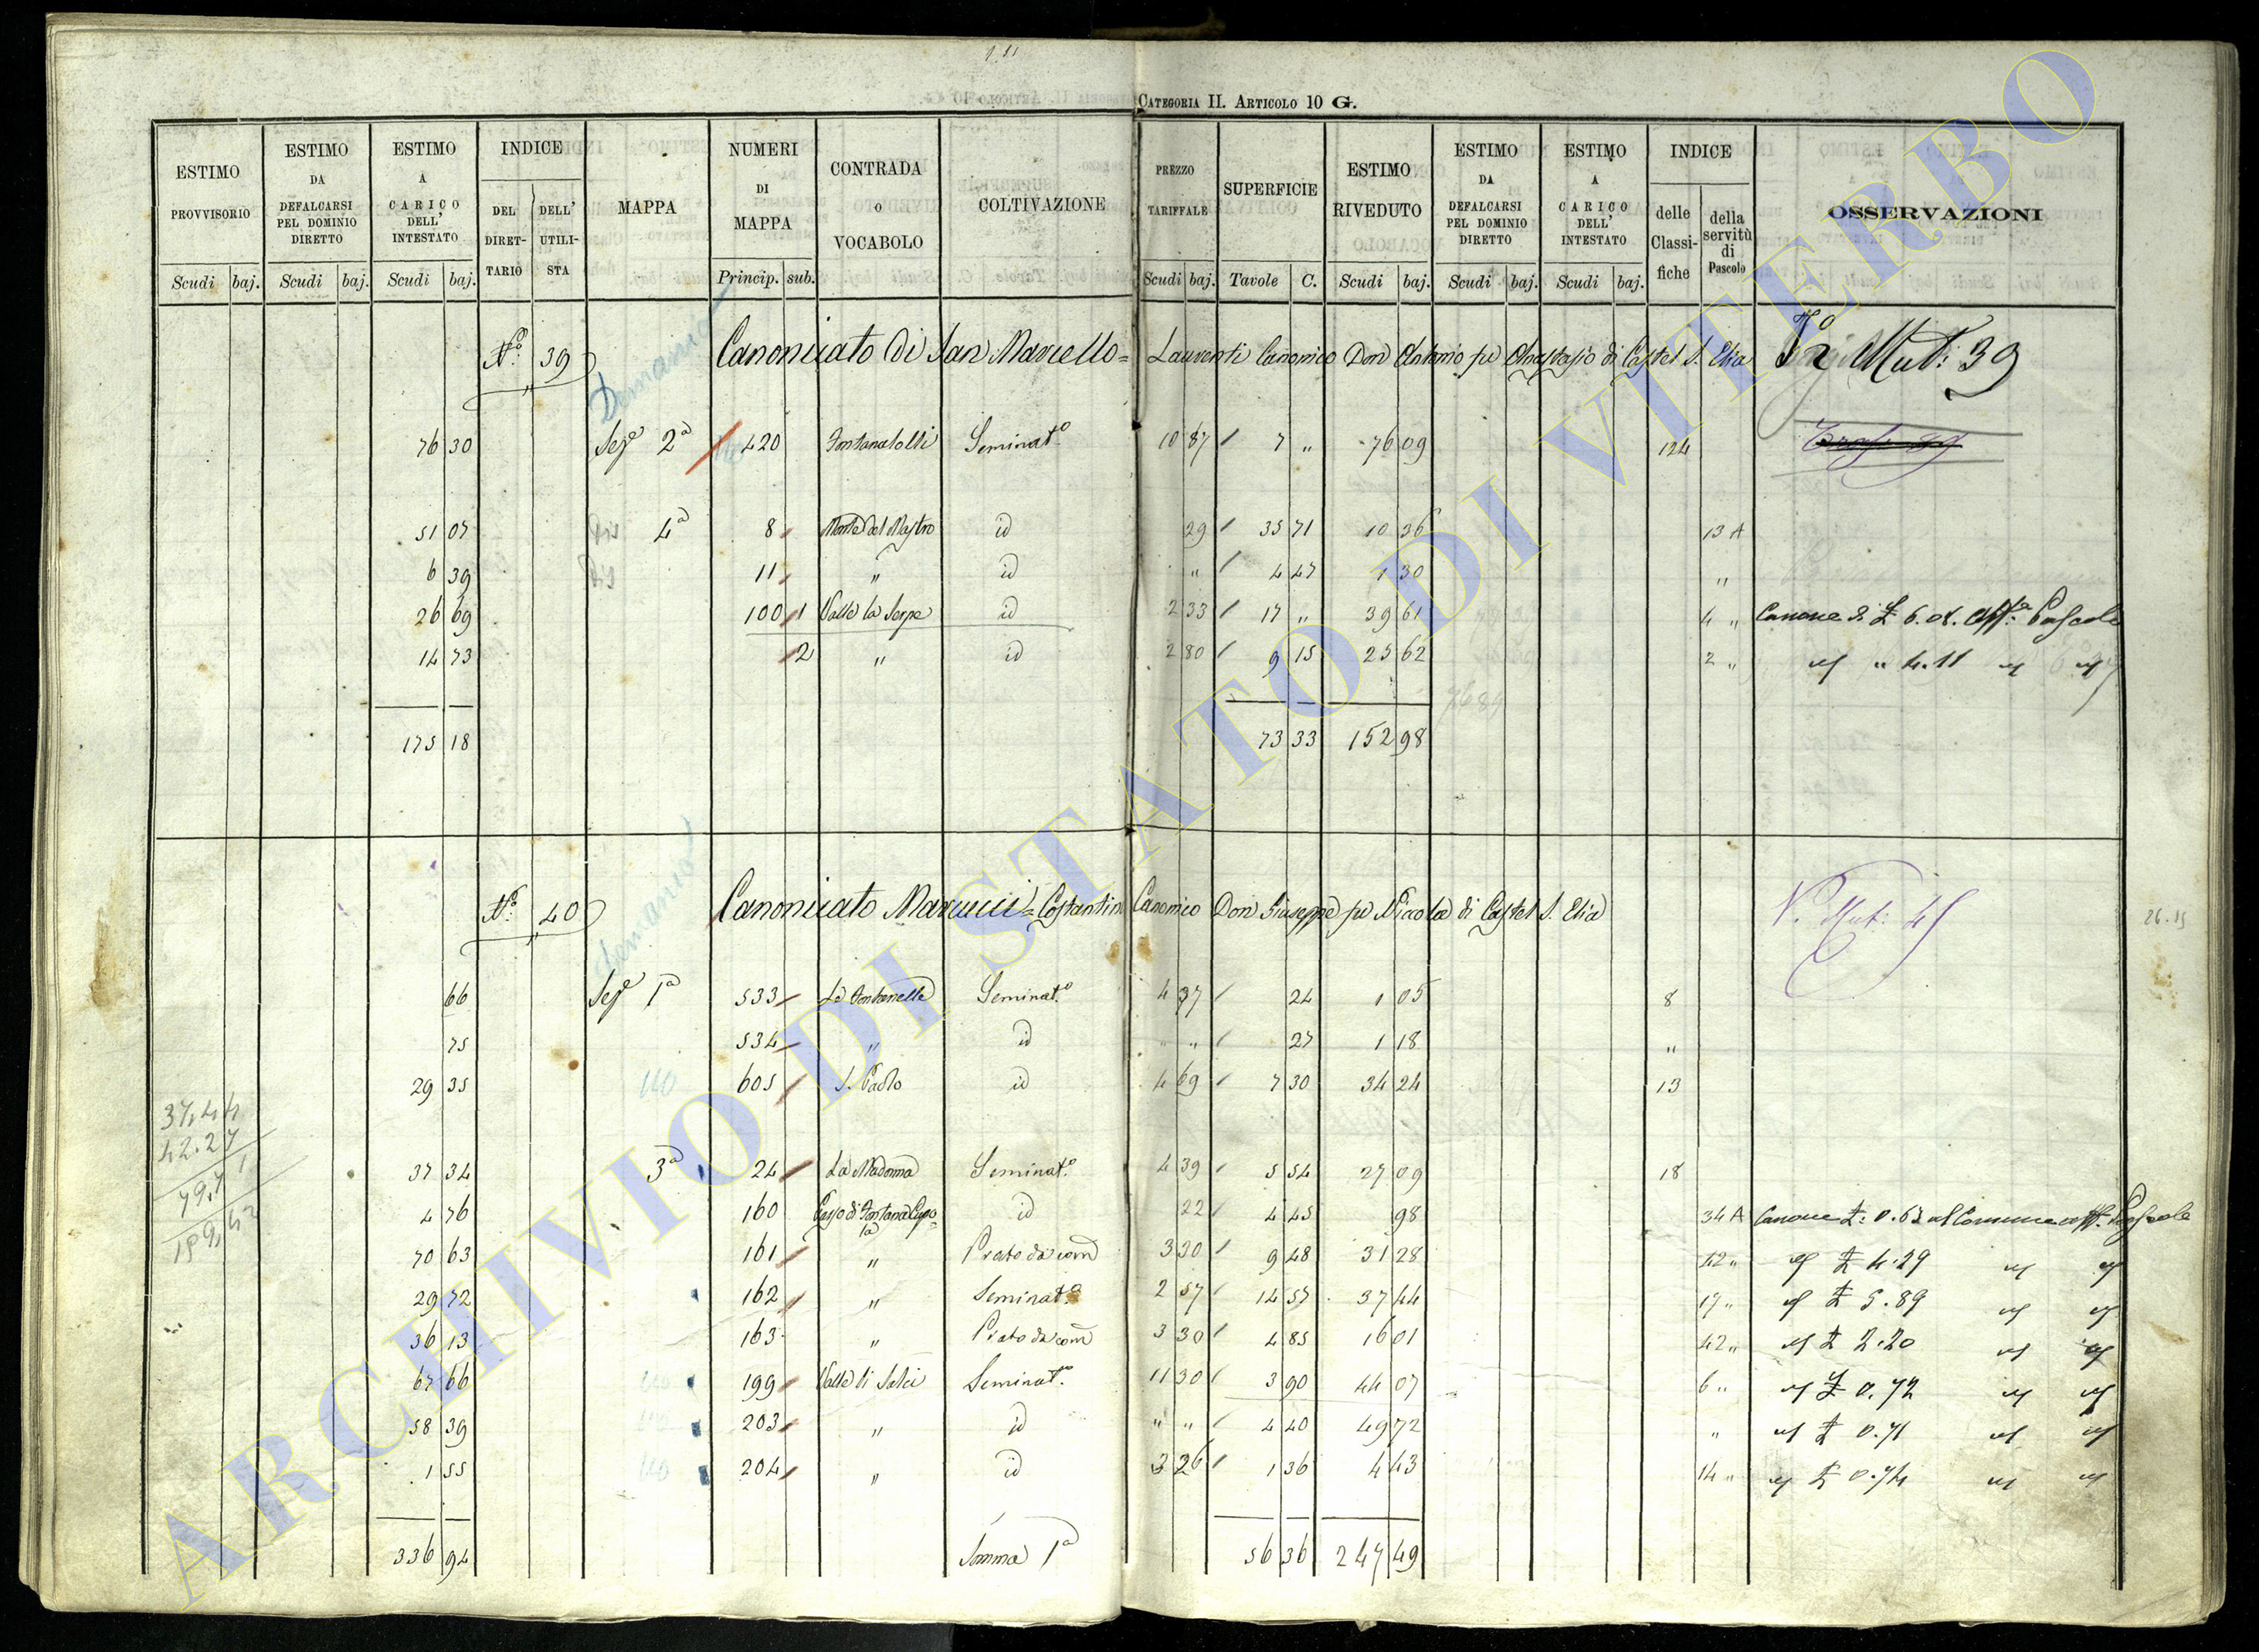 Categoria II. Articolo 10 G.
ESTIMO PROVVISORIO Scudi baj. ESTIMO DA DEFALCARSI PEL DOMINIO DIRETTO Scudi baj. ESTIMO A CARICO DELL' INTESTATO Scudi baj. INDICE DEL DIRETTARIO DELL' UTILISTA MAPPA NUMERI DI MAPPA Princip. sub. CONTRADA O VOCABOLO COLTIVAZIONE PREZZO TARIFFALE Scudi baj. SUPERFICIE Tavole C. ESTIMO RIVEDUTO Scudi baj. ESTIMO DA DEFALCARSI PEL DOMINIO DIRETTO Scudi baj. ESTIMO A CARICO DELL' INTESTATO Scudi baj. INDICE delle Classifiche della servitù di Pascolo OSSERVAZIONI
Demanio
N.º 39 Canonicato di San Marcello = Laurenti Canonico Don Antonio fu Anastasio di Castel S. Elia Mut: 39
76 30 Sez.e 2ª 420 Seminat.º 10 87 7 " 76 09 124
51 07 4ª 8 Monte del Mastro id 29 35 71 10 36 13 A
6 39 11 " id " 4 47 1 30 "
26 69 100 1 Valle la Serpe id 2 33 17 " 39 61 4 " Canone di £ 6.08. aff.º Pascolo
14 73 2 " id 2 80 9 15 25 62 2 " " 4.11
175 18 73 33 152 98
Demanio
N.º 40 Canonicato Marcucci = Costantini Canonico Don Giuseppe fu Niccola di Castel S. Elia V. Mut: 45
26.15
66 Sez.e 1ª 533 Le Fontanelle Seminat.º 4 37 24 1 05 8
75 534 " id " " 27 1 18 "
29 35 605 S. Paolo id 4 69 7 30 34 24 13
37,44
42.27
37 34 3ª 24 La Madonna Seminat.º 4 39 5 54 27 09 18
79,71
4 76 160 Passo di Fontana Cupola id 22 4 45 98 34 A Canone £: 0.63 al Comune aff. Pascolo
159,42
70 63 161 " Prato da com 3 30 9 48 31 28 42 " £ 4.29
29 72 162 " Seminat.º 2 57 14 57 37 44 17 " £ 5.89
36 13 163 " Prato da com 3 30 4 85 16 01 42 " £ 2.20
67 66 199 Valle di Salci Seminat.º 11 30 3 90 44 07 6 " £ 0.72
58 39 203 " id " " 4 40 49 72 " £ 0.71
1 55 204 " id 3 26 1 36 4 43 14 " £ 0.74
336 94 Somma 1ª 56 36 247 49
ARCHIVIO DI STATO DI VITERBO